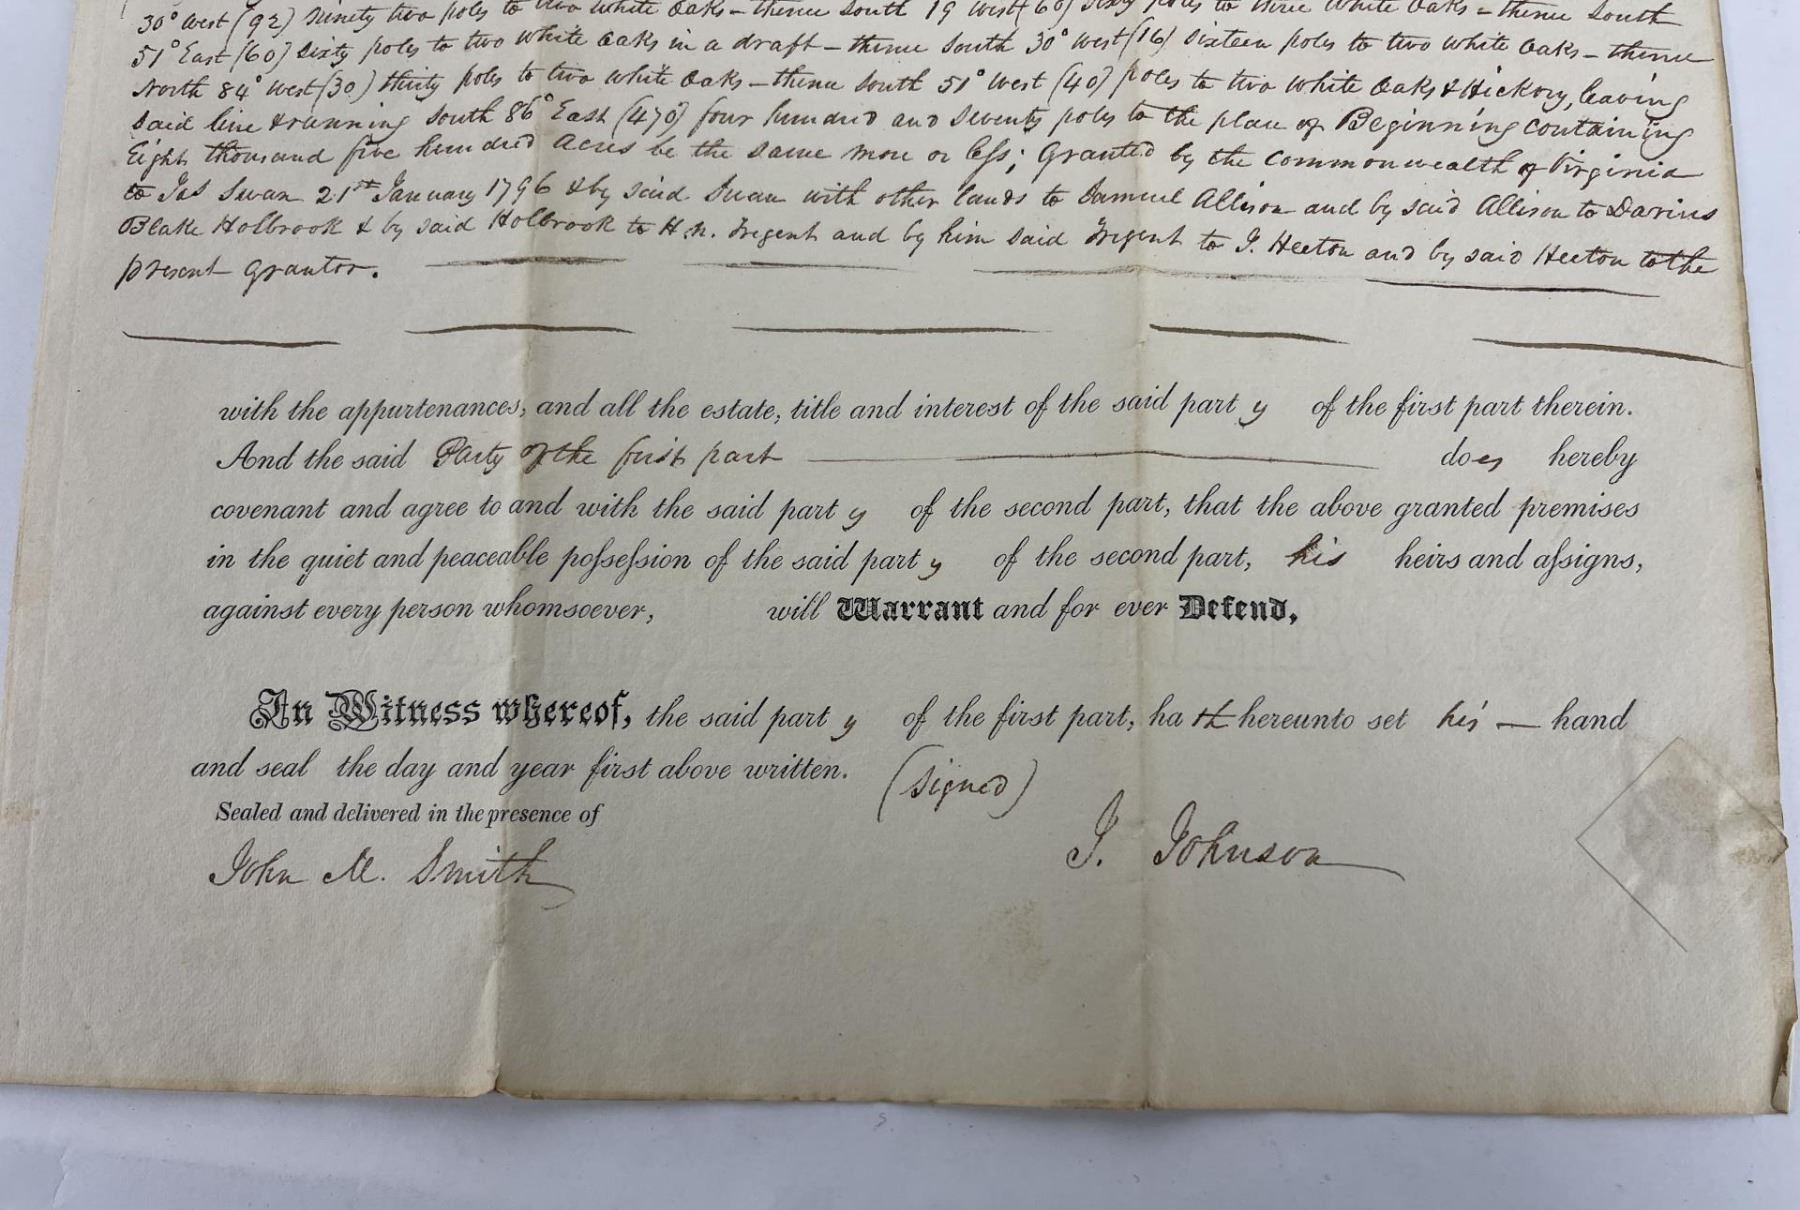 30° west (92) ninety two poles to two white oaks – thence South 19 west (60) sixty poles to three white oaks – thence South
51° East (60) sixty poles to two white oaks in a draft – thence South 30° west (16) sixteen poles to two white oaks – thence
North 84° west (30) thirty poles to two white oaks – thence South 51° west (40) poles to two white oaks & Hickory, leaving
said line & running South 86° East (470) four hundred and seventy poles to the place of Beginning containing
Eight thousand five hundred Acres be the same more or less; Granted by the Commonwealth of Virginia
to Jas Swan 21st January 1796 & by said Swan with other lands to Samuel Allison and by said Allison to Darius
Blake Holbrook & by said Holbrook to H. n. Tregent and by him said Tregent to J. Heeton and by said Heeton to the
present grantor.
with the appurtenances, and all the estate, title and interest of the said party of the first part therein.
And the said Party of the first part does hereby
covenant and agree to and with the said party of the second part, that the above granted premises
in the quiet and peaceable poſseſsion of the said party of the second part, his heirs and aſsigns,
against every person whomsoever, will Warrant and for ever Defend,
In Witness whereof, the said party of the first part, hath hereunto set his – hand
and seal the day and year first above written. (signed)
Sealed and delivered in the presence of
John M. Smith
J. Johnson